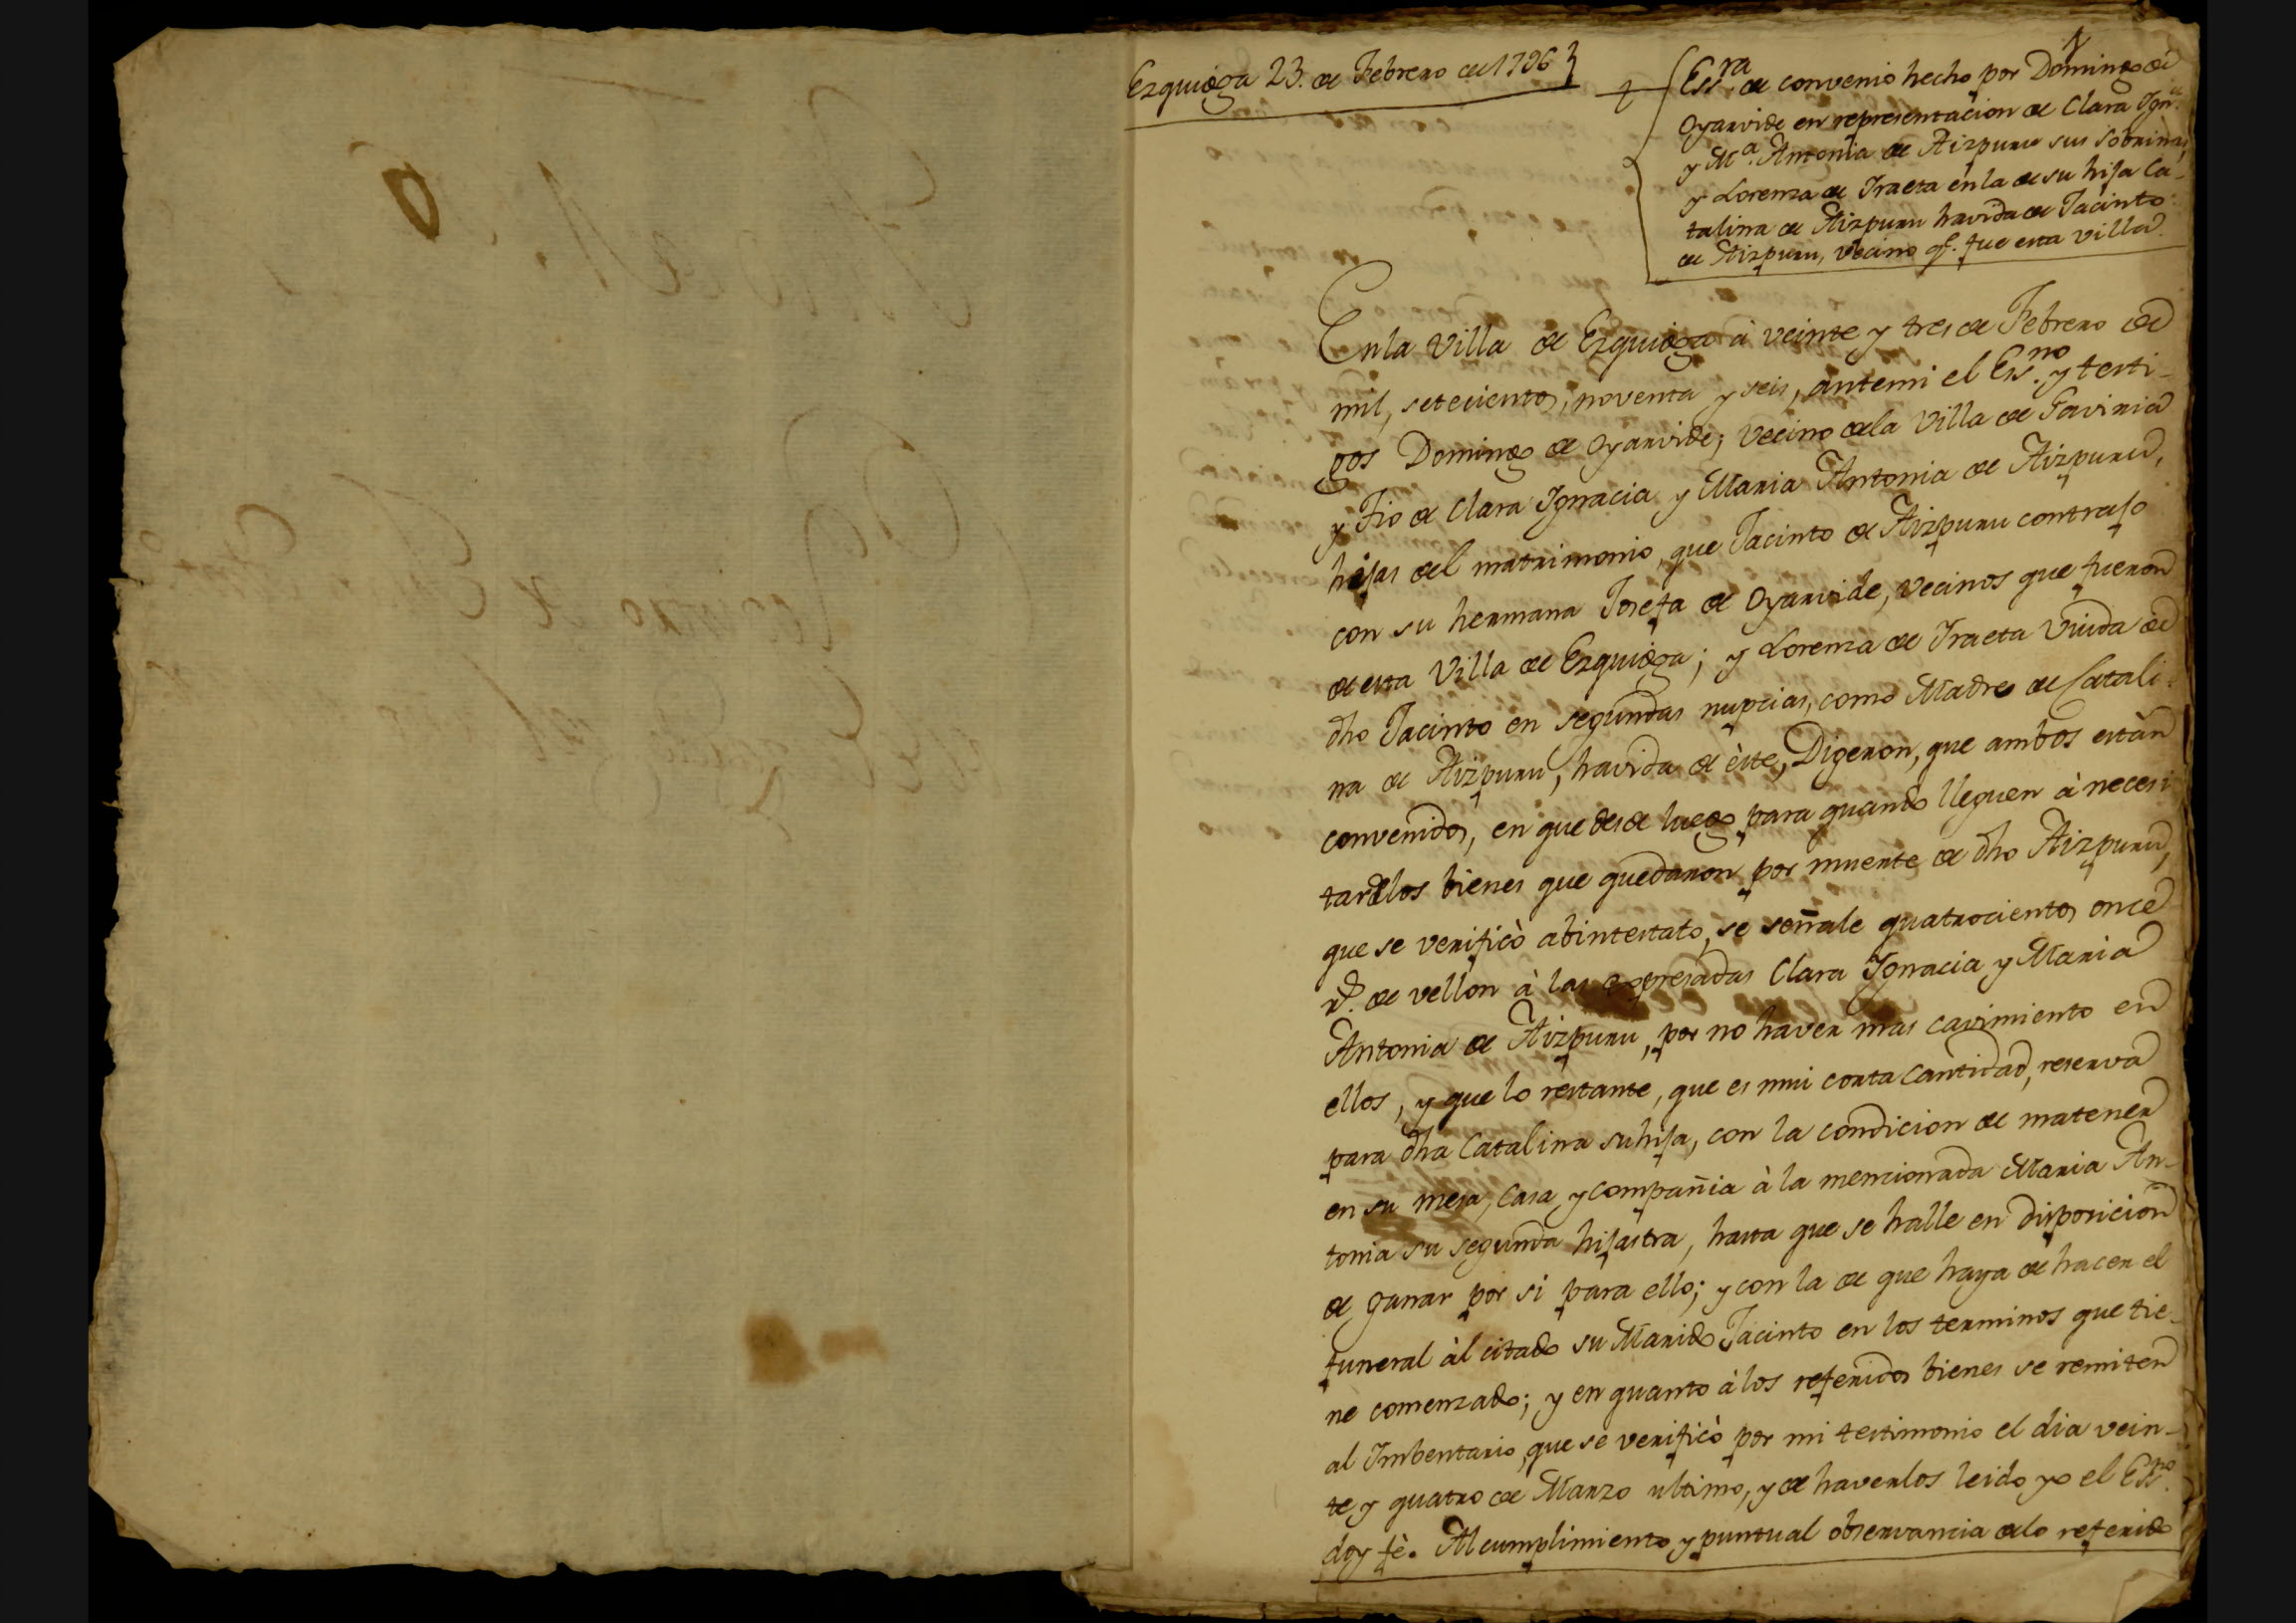 Ezquioga 23. de Febrero de 1796
1
Essra. de convenio hecho por Domingo de
Oyarvide en representacion de Clara Igna.
y Ma. Antonia de Aizpuru sus sobrinas,
y Lorenza de Iraeta en la de su hija Ca-
talina de Aizpuru havida de Jacinto
de Aizpuru, vecino q.e fue esta villa.
En la Villa de Ezquioga à veinte y tres de Febrero de
mil, setecientos, noventa y seis, ante mi el Esno. y testi-
gos Domingo de Oyarvide, Vecino de la Villa de Gaviria
y Tio de Clara Ignacia y Maria Antonia de Aizpuru,
hijas del matrimonio, que Jacinto de Aizpuru contrajo
con su hermana Josefa de Oyarvide, vecinos que fueron
de esta Villa de Ezquioga; y Lorenza de Iraeta Viuda de
dho Jacinto en segundas nupcias, como Madre de Catali-
na de Aizpuru, havida de èste, Digeron, que ambos estàn
convenidos, en que desde luego para quando lleguen à necesi
tar de los bienes que quedaron por muerte de dho Aizpuru,
que se verificò abintestato, se señale quatrocientos once
rs. de vellon à las expresadas Clara Ignacia y Maria
Antonia de Aizpuru, por no haver mas cavimiento en
ellos, y que lo restante, que es mui corta cantidad, reserva
para dha Catalina su hija, con la condicion de matener
en su mesa, casa y compañia à la mencionada Maria An-
tonia su segunda hijastra, hasta que se halle en disposicion
de ganar por si para ello; y con la de que haya de hacer el
funeral àl citado su Marido Jacinto en los terminos que tie-
ne comenzado; y en quanto à los referidos bienes se remiten
al Imbentario, que se verificò por mi testimonio el dia vein-
te y quatro de Marzo ultimo, y de haverlos leido yo el Esno.
doy fè. Al cumplimiento y puntual observancia de lo referido